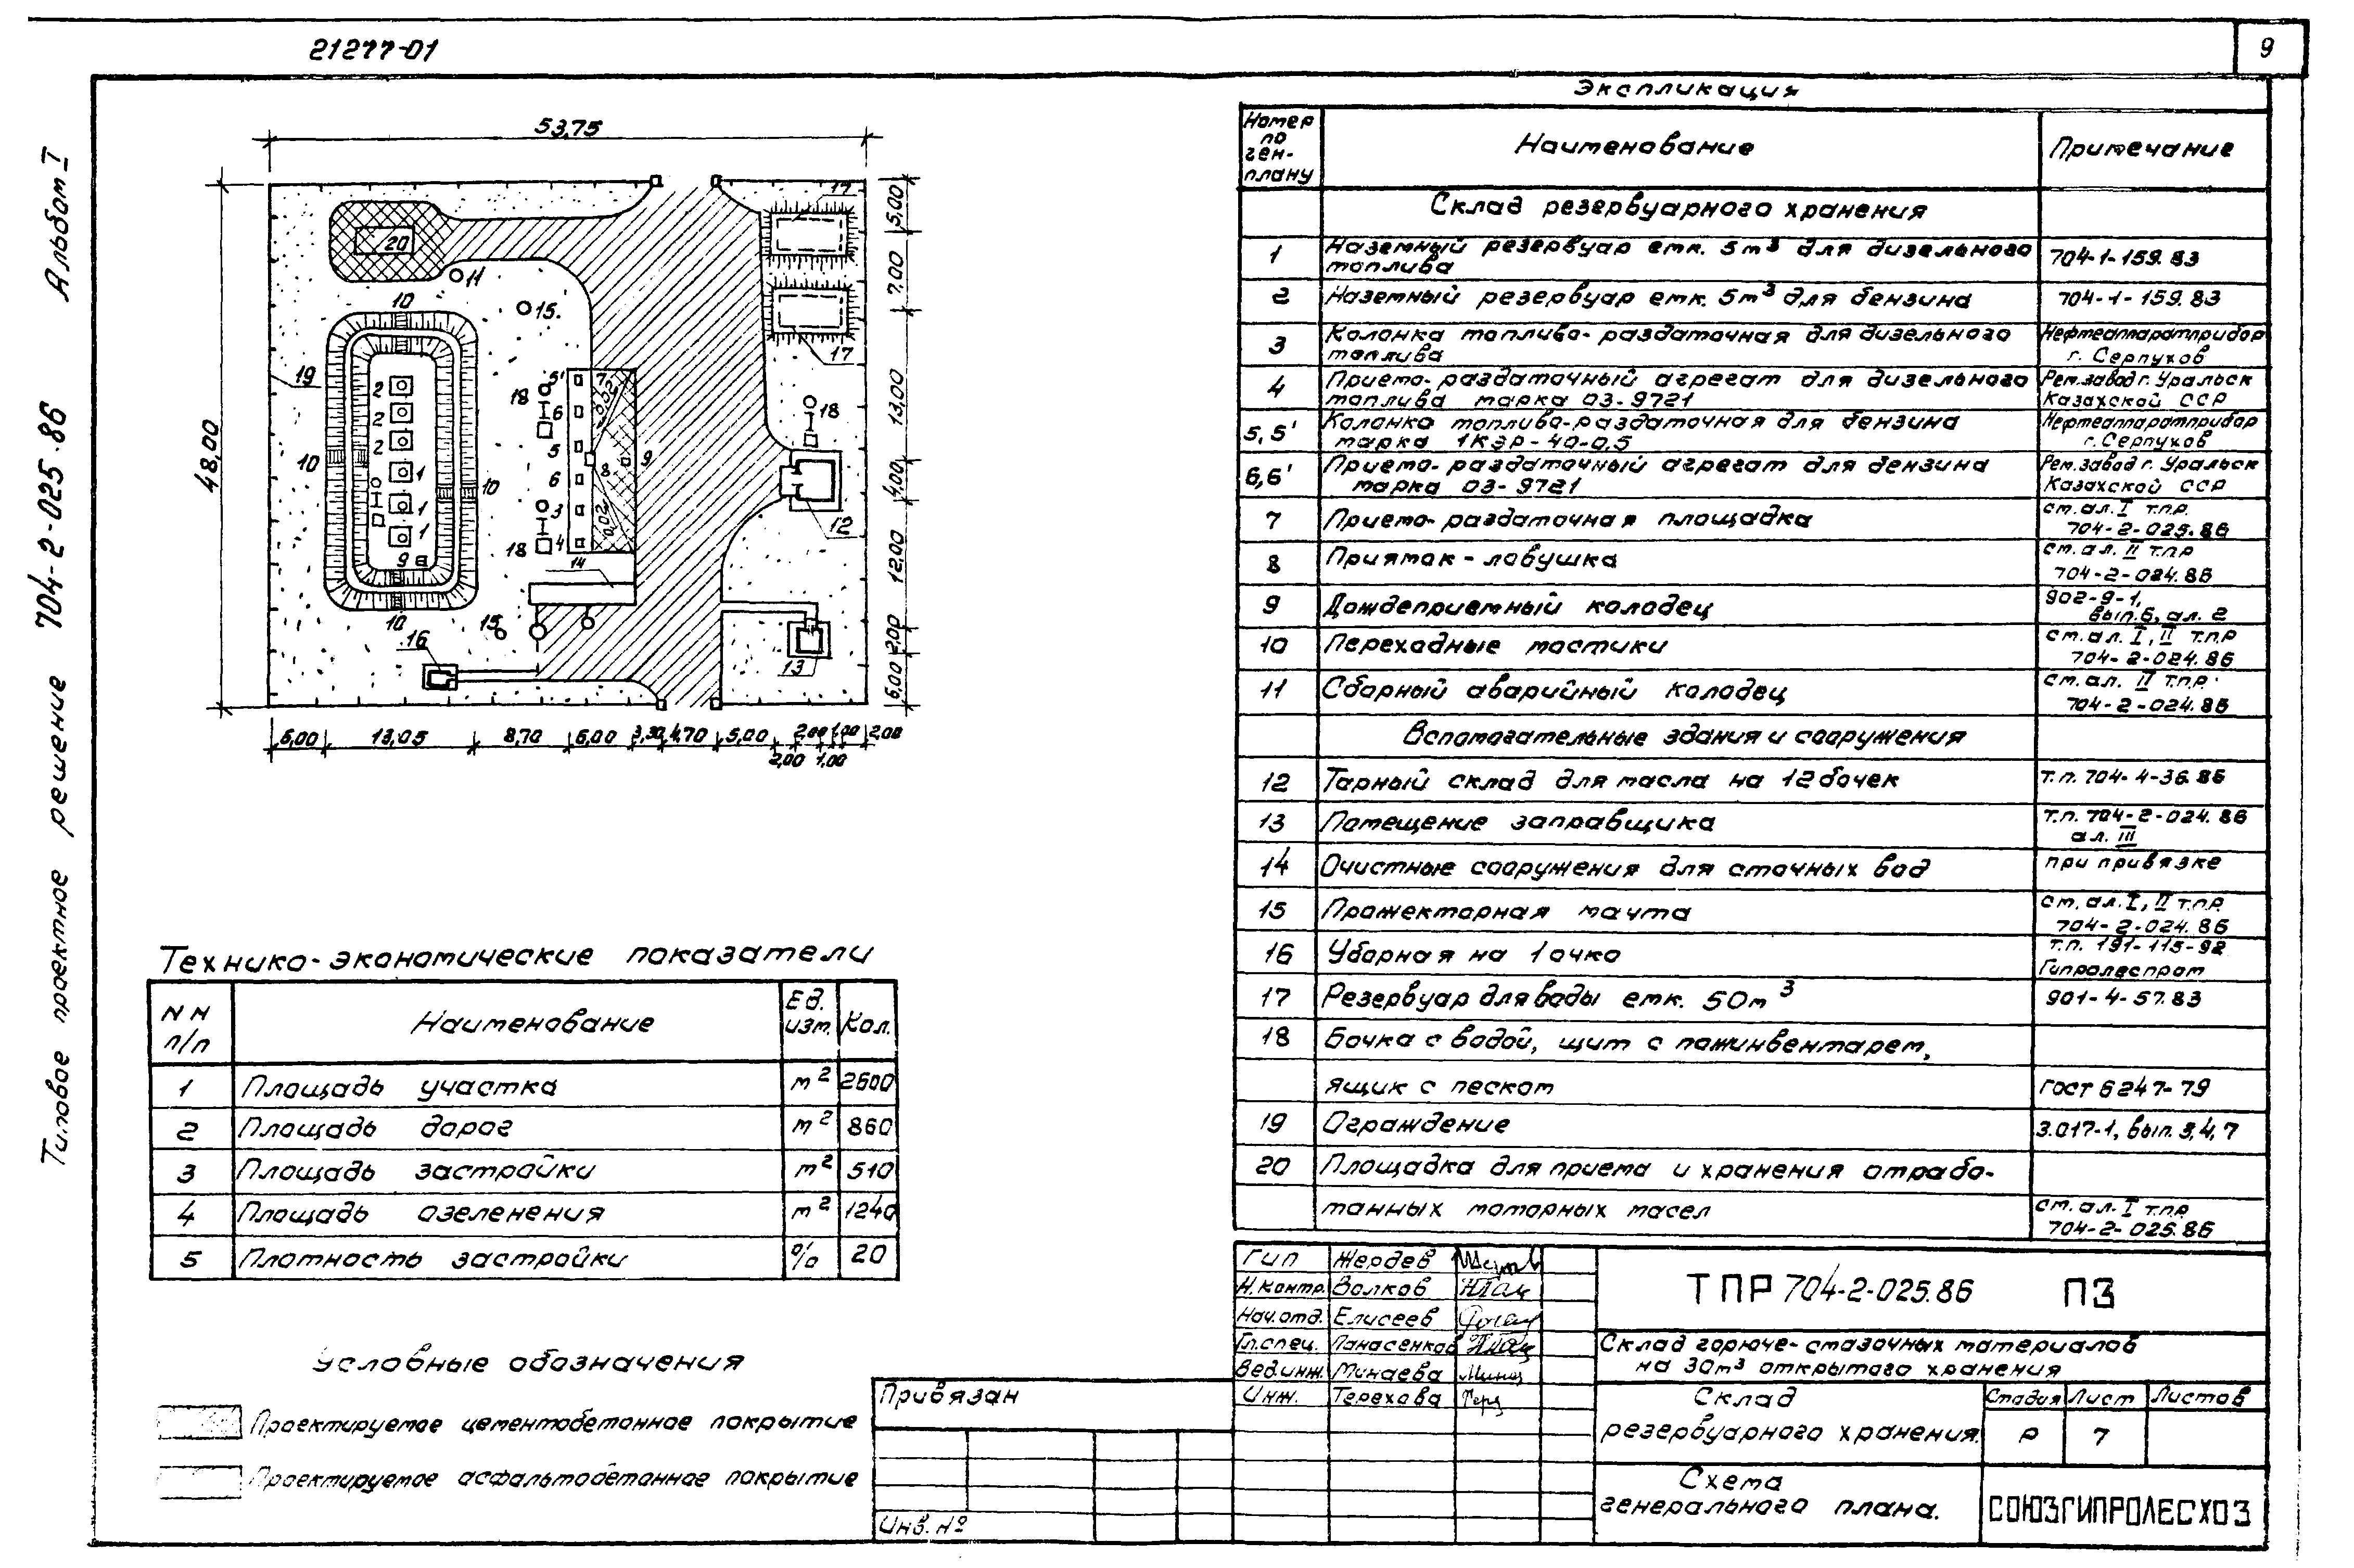 21277-01
9
Альбом I
Типовое проектное решение 704-2-025.86
53,75
48,00
5,00
7,00
13,00
4,00
12,00
2,00
6,00
5,00 13,05 8,70 6,00 3,30 4,70 5,00 2,00 1,00 2,00
2,00 1,00
17
20
11
10
15.
17
19
2
2
2
1
1
1
10
10
9
10
18
5'
7
0,02
6
5
8
9
6
3
0,02
4
18
14
18
12
15
16
13
Экспликация
Номер по ген-плану Наименование Примечание
Склад резервуарного хранения
1 Наземный резервуар емк. 5м³ для дизельного топлива 704-1-159.83
2 Наземный резервуар емк. 5м³ для бензина 704-1-159.83
3 Колонка топливо-раздаточная для дизельного топлива Нефтеаппаратприбор г. Серпухов
4 Приемо-раздаточный агрегат для дизельного топлива марка 03-9721 Рем.завод г. Уральск Казахской ССР
5,5' Колонка топливо-раздаточная для бензина марка 1КЭР-40-0,5 Нефтеаппаратприбор г.Серпухов
6,6' Приемо-раздаточный агрегат для бензина марка 03-9721 Рем.завод г. Уральск Казахской ССР
7 Приемо-раздаточная площадка см.ал.I т.п.р. 704-2-025.86
8 Приямок-ловушка см.ал.II т.п.р 704-2-024.86
9 Дождеприемный колодец 902-9-1, вып.6, ал.2
10 Переходные мостики см.ал.I,II т.п.р 704-2-024.86
11 Сборный аварийный колодец см.ал. II т.п.р. 704-2-024.86
Вспомогательные здания и сооружения
12 Тарный склад для масла на 12 бочек т.п. 704-4-36.86
13 Помещение заправщика т.п. 704-2-024.86 ал. III
14 Очистные сооружения для сточных вод при привязке
15 Прожекторная мачта см.ал.I,II т.п.р. 704-2-024.86
16 Уборная на 1 очко т.п. 191-115-92 Гипролеспром
17 Резервуар для воды емк. 50м³ 901-4-57.83
18 Бочка с водой, щит с пожинвентарем,
ящик с песком ГОСТ 6247-79
19 Ограждение 3.017-1, вып. 3,4,7
20 Площадка для приема и хранения отрабо-
танных моторных масел см.ал.I т.п.р. 704-2-025.86
Технико-экономические показатели
NN п/п Наименование Ед. изм. Кол.
1 Площадь участка м² 2600
2 Площадь дорог м² 860
3 Площадь застройки м² 510
4 Площадь озеленения м² 1240
5 Плотность застройки % 20
Условные обозначения
Проектируемое цементобетонное покрытие
Проектируемое асфальтобетонное покрытие
Привязан
Инв. №
Гип Жердев
Н.контр. Волков
Нач.отд. Елисеев
Гл.спец. Панасенков
Вед.инж. Минаева
Инж. Терехова
ТПР 704-2-025.86 ПЗ
Склад горюче-смазочных материалов
на 30м³ открытого хранения
Склад
резервуарного хранения.
Стадия Лист Листов
Р 7
Схема
генерального плана.
СОЮЗГИПРОЛЕСХОЗ